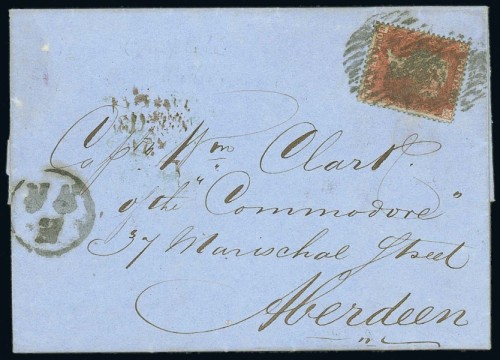 Capt. Wm Clark
of the "Commodore"
37 Marischal Street
Aberdeen